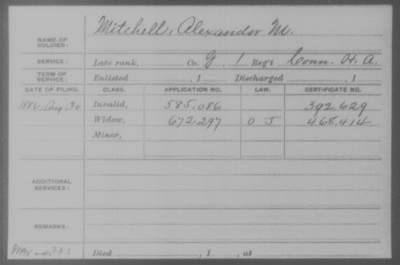 NAME OF SOLDIER: Mitchell, Alexander M.
SERVICE: Late rank, Co. G 1 Reg't Conn. H. A.
TERM OF SERVICE: Enlisted , 1 Discharged , 1
DATE OF FILING. CLASS. APPLICATION NO. LAW. CERTIFICATE NO.
1886, Aug. 30 Invalid, 585,086 392,629
Widow, 672,297 O J 468,414
Minor,
ADDITIONAL SERVICES:
REMARKS:
Died , 1 , at